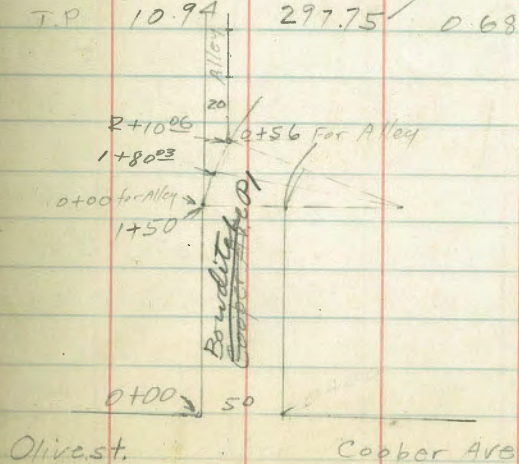 T.P 10.94 297.75 0.68
Alley
20
2+10<u>06</u> 0+56 For Alley
1+80<u>03</u>
0+00 for Alley
1+50
Bowditch Pl
Cooper Ave
0+00 50
Olive st. Coober Ave